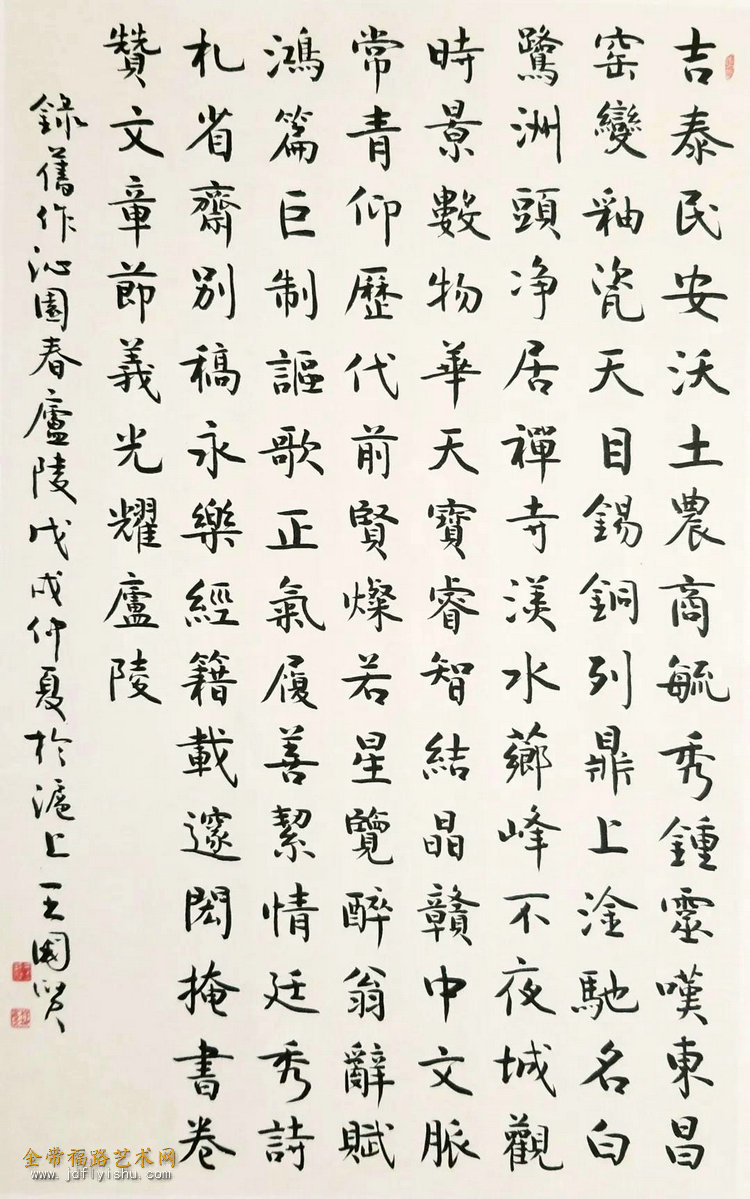 吉泰民安沃土農商毓秀鍾靈嘆東昌
窑變釉瓷天目錫銅列鼎上淦馳名白
鷺洲頭净居禪寺渼水薌峰不夜城觀
時景數物華天寶睿智結晶贛中文脈
常青仰歷代前賢燦若星覽醉翁辭賦
鴻篇巨制謳歌正氣履善絜情廷秀詩
札省齋别稿永樂經籍載邃閎掩書卷
贊文章節義光耀廬陵
錄舊作沁園春廬陵戊戌仲夏於滬上王國賢
金带福路艺术网
www.jdflyishu.com